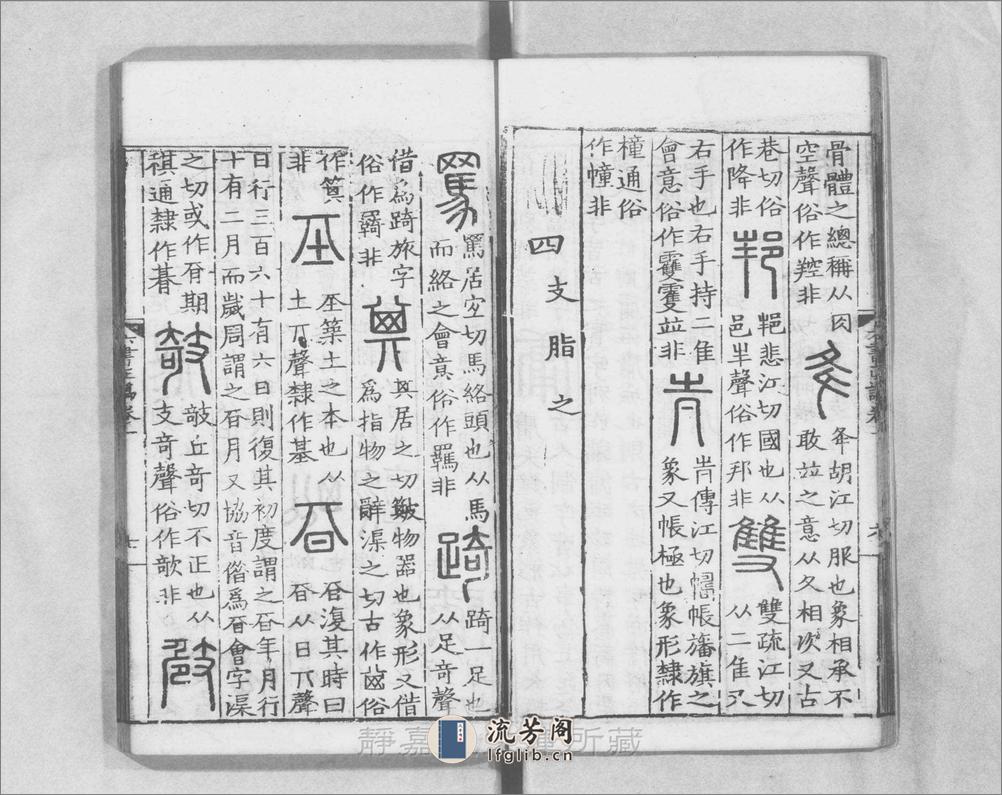 骨體之總稱从肉夅夅胡江切服也象相承不
空聲俗作䏺非敢竝之意从夂相次又古
巷切俗邦邦悲江切國也从雙雙疏江切
作降非邑丰聲俗作邦非从二隹又
右手也右手持二隹
會意俗作䨥霎竝非
𡴀傳江切㡖帳旛旗之
象又帳極也象形隸作
橦通俗
作幢非
四支脂之
䮠罵居宜切馬絡頭也从馬踦踦一足也
而絡之會意俗作羈非从足奇聲
借爲踦旅字其其居之切簸物器也象形又借
俗作羇非爲指物之辭渠之切古作𠀠俗
作箕坖坖築土之本也从㫷㫷復其時曰
非土丌聲隸作基㫷从日丌聲
日行三百六十有六日則復其初度謂之㫷年月行
十有二月而歲周謂之㫷月又協音偕爲㫷會字渠
之切或作有期敧敧丘奇切不正也从
祺通隸作朞支奇聲俗作欹非
六書正譌卷一
六書正譌卷一
七
静嘉
所藏
流芳阁
lfglib.cn